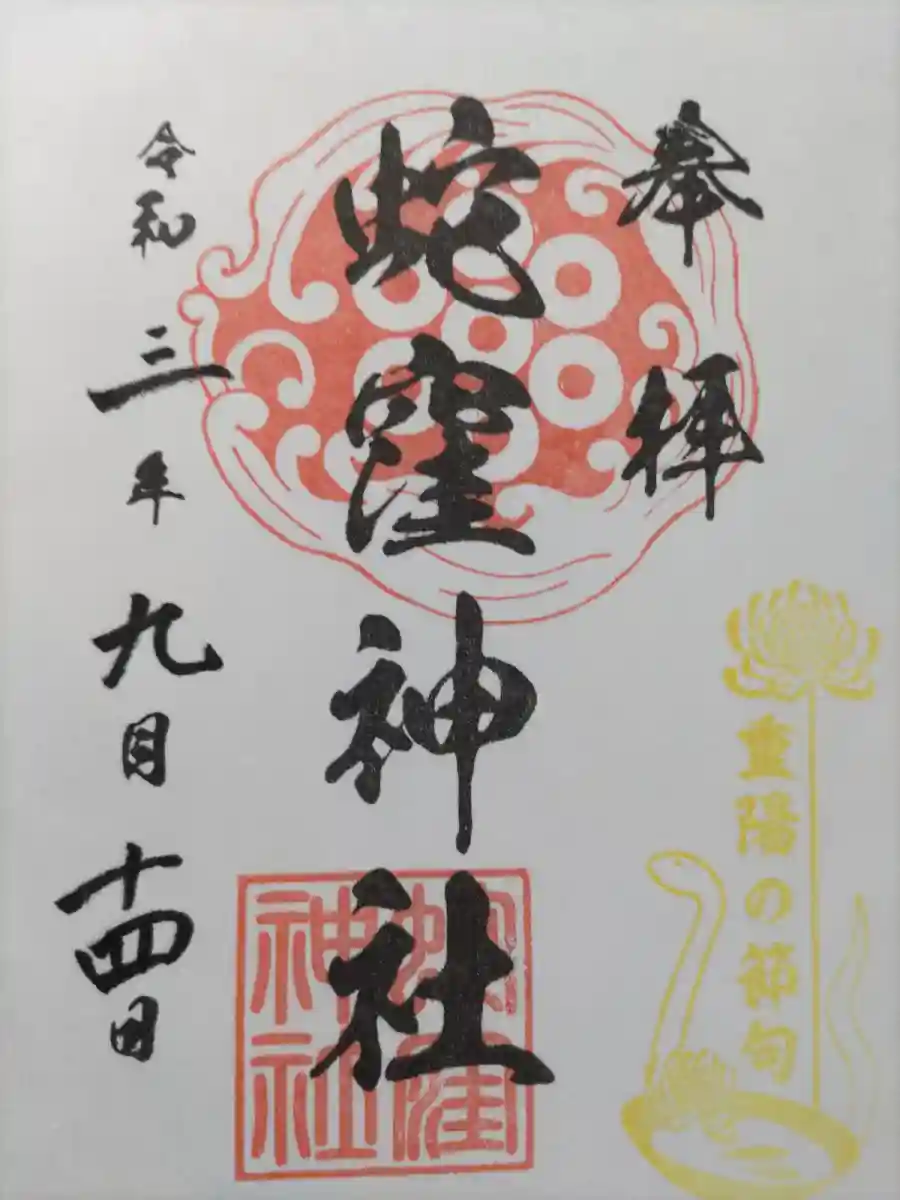 奉拝
重陽の節句
蛇窪神社
蛇窪神社
令和三年九月十四日